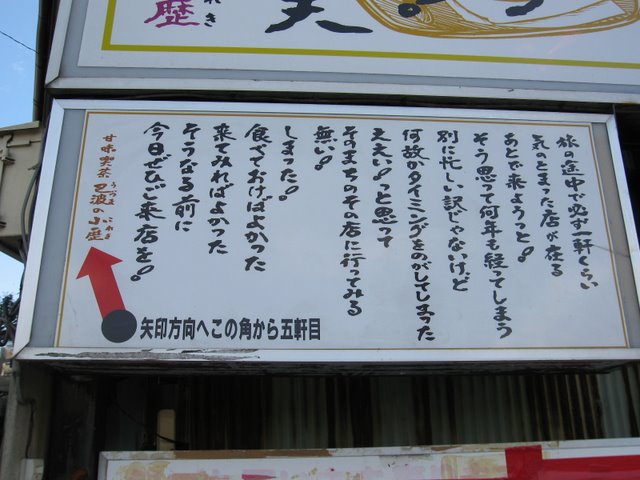 れき
歴
天
旅の途中で必ず一軒くらい
気のとまった店が在る
あとで来ようっと!
そう思って何年も経ってしまう
別に忙しい訳じゃないけど
何故かタイミングをのがしてしまった
ええい!っと思って
そのまちのその店に行ってみる
無い!
しまった!
食べておけばよかった
来てみればよかった
そうなる前に
今日ぜひご来店を!
甘味喫茶 の小庭
矢印方向へこの角から五軒目